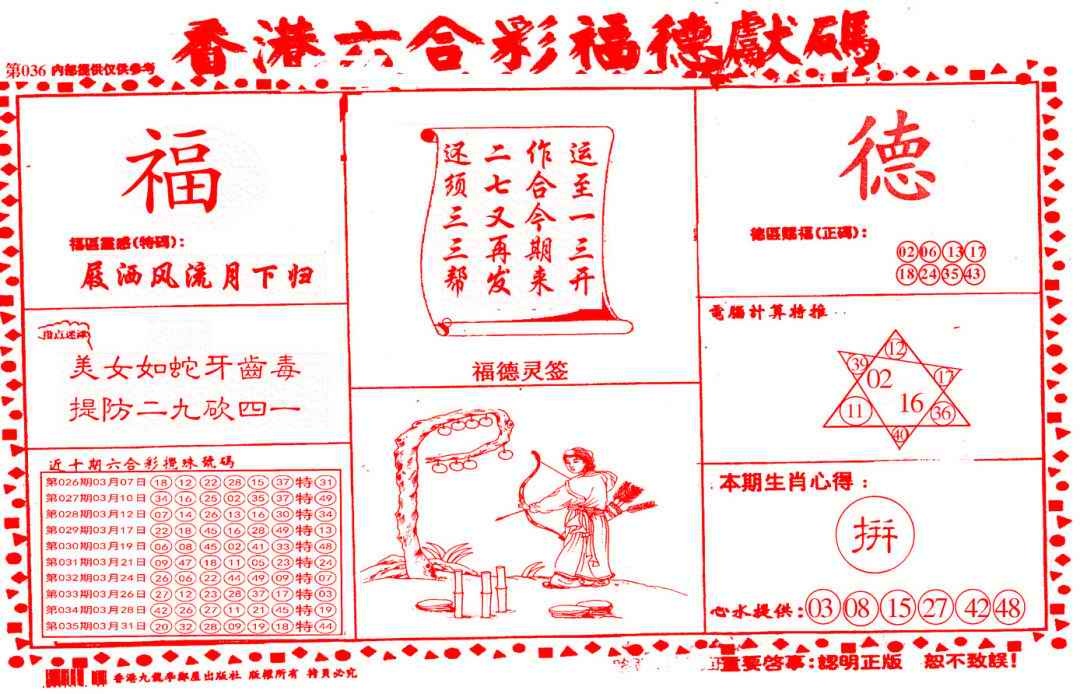 香港六合彩福德獻碼
第036 内部提供仅供参考
福
福區靈感(特碼):
屐洒风流月下归
美女如蛇牙齒毒
提防二九砍四一
近十期六合彩攪珠號碼
第026期03月07日 18 12 22 28 15 37 特 31
第027期03月10日 34 16 25 02 35 37 特 49
第028期03月12日 07 14 26 13 16 30 特 34
第029期03月17日 22 18 45 16 28 49 特 13
第030期03月19日 06 08 45 02 41 33 特 48
第031期03月21日 09 47 18 11 05 23 特 24
第032期03月24日 26 06 22 44 49 09 特 07
第033期03月26日 27 12 23 28 37 17 特 03
第034期03月28日 42 26 27 11 21 45 特 19
第035期03月31日 20 32 28 09 19 18 特 44
运至一三开
作合今期来
二七又再发
还须三三帮
福德灵签
德
德區賜福(正碼):
02 06 13 17
18 24 35 43
電腦計算特推
12
39
02
17
11
16
36
40
本期生肖心得:
拼
心水提供: 03 08 15 27 42 48
重要啓事:認明正版 恕不致誤!
出版社 版權所有